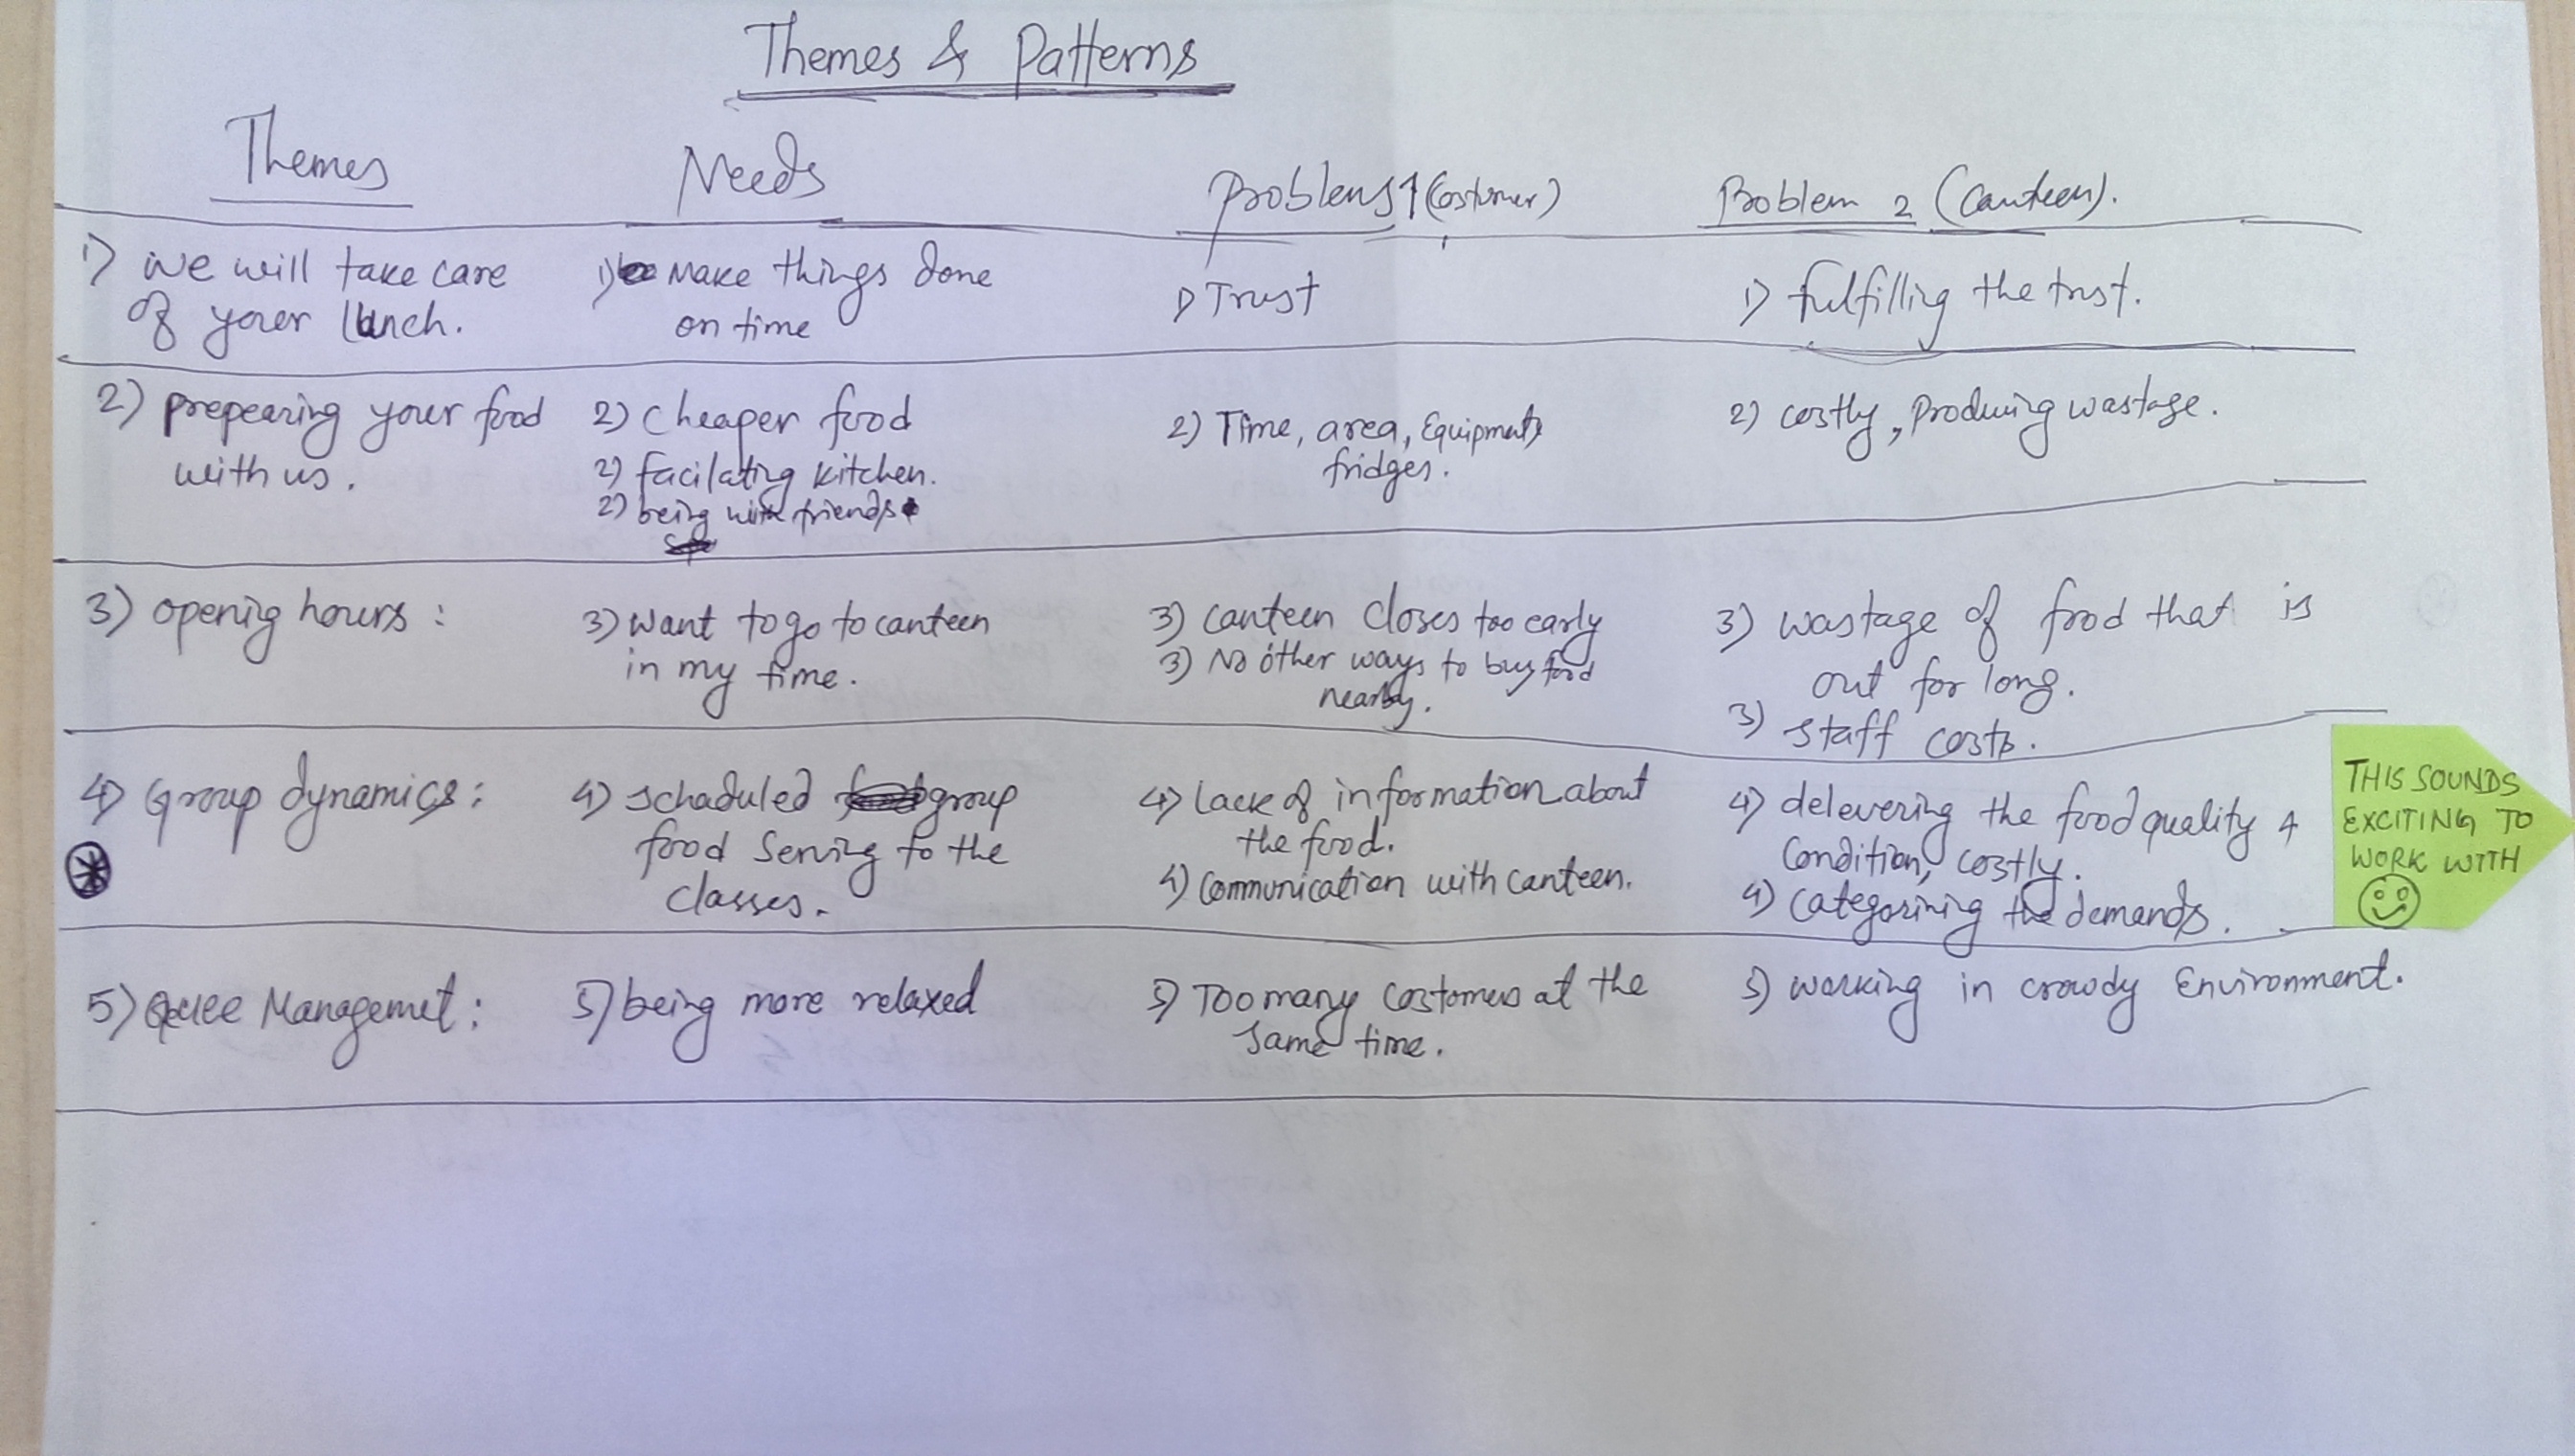 Themes & Patterns
Themes
Needs
Problems 1 (Costumer)
Problem 2 (Canteen).
1) we will take care
of your lunch.
1) Make things done
on time
1) Trust
1) fulfilling the trust.
2) prepearing your food
with us.
2) Cheaper food
2) facilating kitchen.
2) being with friends
2) Time, area, Equipments
fridges.
2) costly, Producing wastage.
3) opening hours :
3) want to go to canteen
in my time.
3) canteen closes too early
3) No other ways to buy food
nearby.
3) wastage of food that is
out for long.
3) staff costs.
4) Group dynamics :
4) schaduled group
food serving to the
classes.
4) Lack of information about
the food.
4) Communication with canteen.
4) delevering the food quality &
Condition, costly.
4) categorining the demands.
THIS SOUNDS
EXCITING TO
WORK WITH
5) Quee Managemet :
5) being more relaxed
5) Too many costomers at the
same time.
5) working in crowdy Environment.